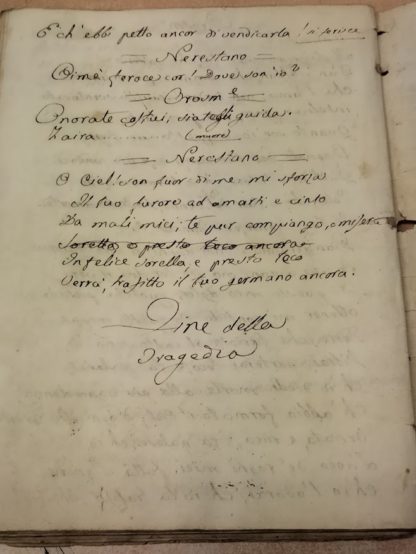 E ch' ebbi petto ancor di vendicarla! si ferisce
Nerestano
Oimè feroce cor! Dove son' io?
Orosme
Onorate costui, siategli guida.
Zaira (muore)
Nerestano
O Ciel! son fuor di me mi sforza
Il tuo furore ad amarti e cinto
Da mali miei, te pur compiango, o misera
Sorella, e presto teco ancora
Infelice sorella, e presto teco
Verrà, trafitto il tuo germano ancora.
Fine della
Tragedia